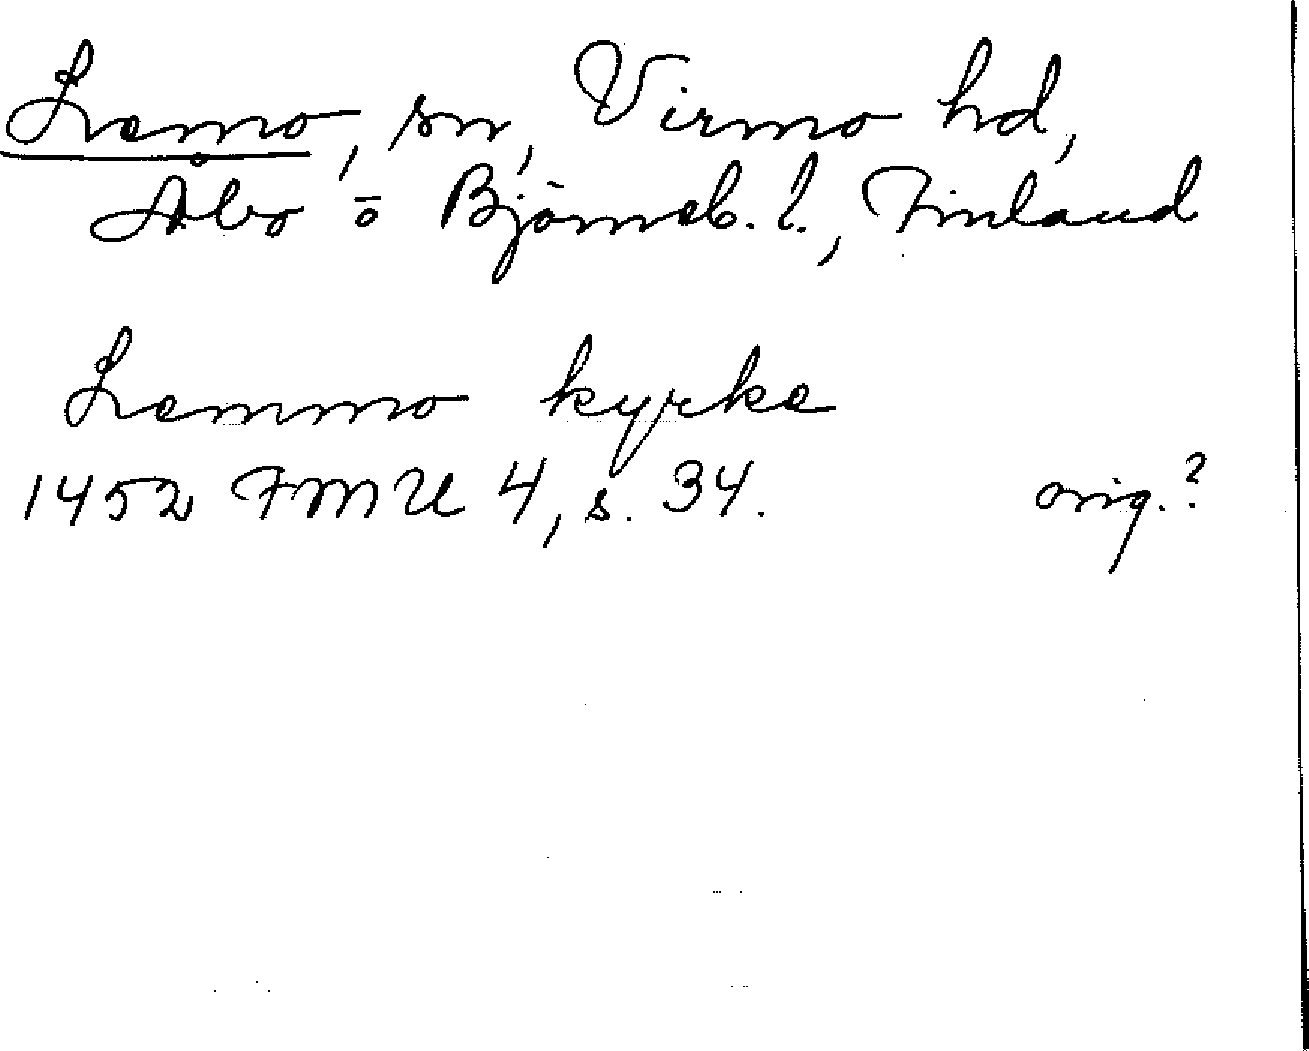 Lemo, sn, Virmo hd,
Åbo o Björneb. l., Finland
Lemmo kyrke
1452 FMU 4, s. 34. orig.?